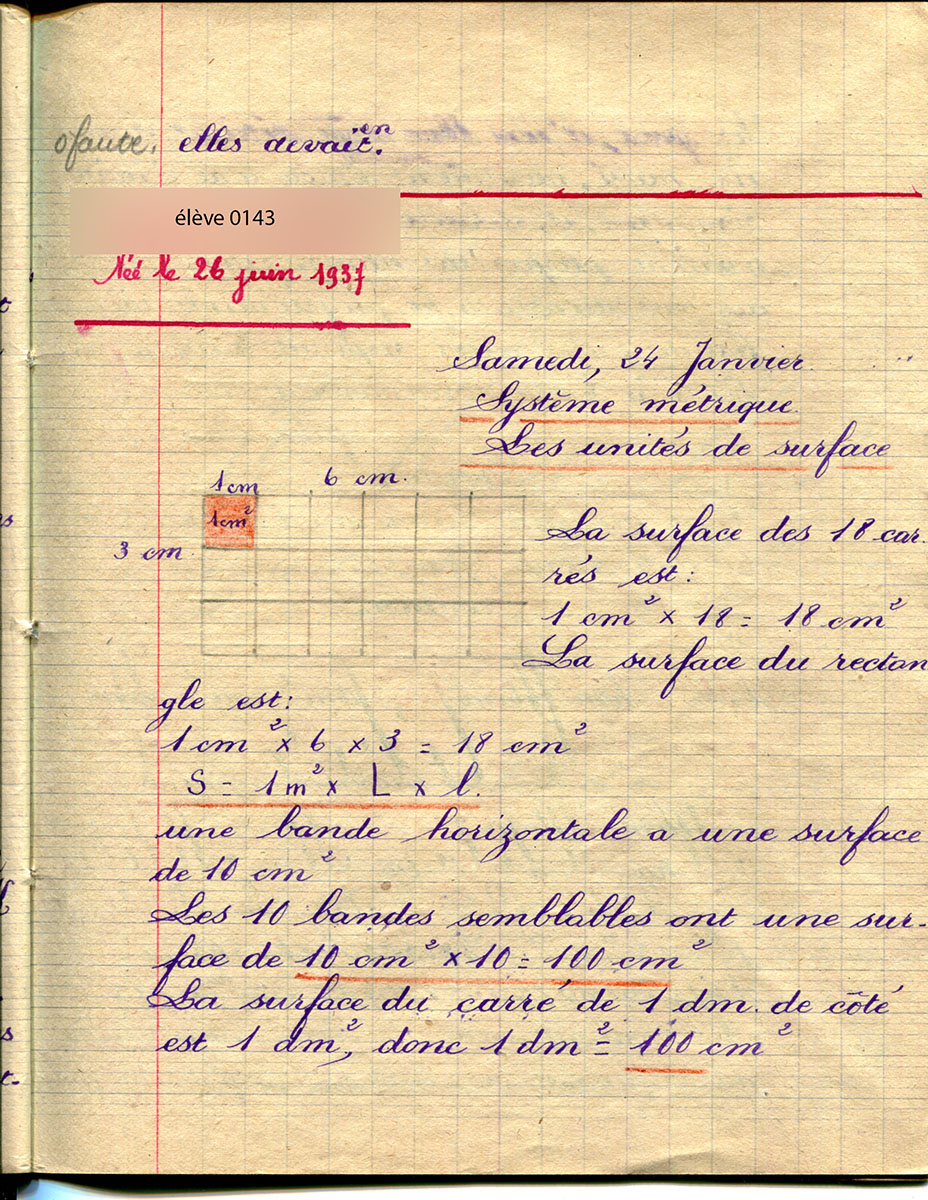 0 faute. elles devaient.
élève 0143
Née le 26 juin 1937
Samedi, 24 Janvier
Système métrique
Les unités de surface
1 cm 6 cm.
1 cm²
3 cm
La surface des 18 car.
rés est :
1 cm² × 18 = 18 cm²
La surface du rectan
gle est :
1 cm² × 6 × 3 = 18 cm²
S = 1 m² × L × l.
une bande horizontale a une surface
de 10 cm²
Les 10 bandes semblables ont une sur-
face de 10 cm² × 10 = 100 cm²
La surface du carré de 1 dm. de côté
est 1 dm², donc 1 dm² = 100 cm²